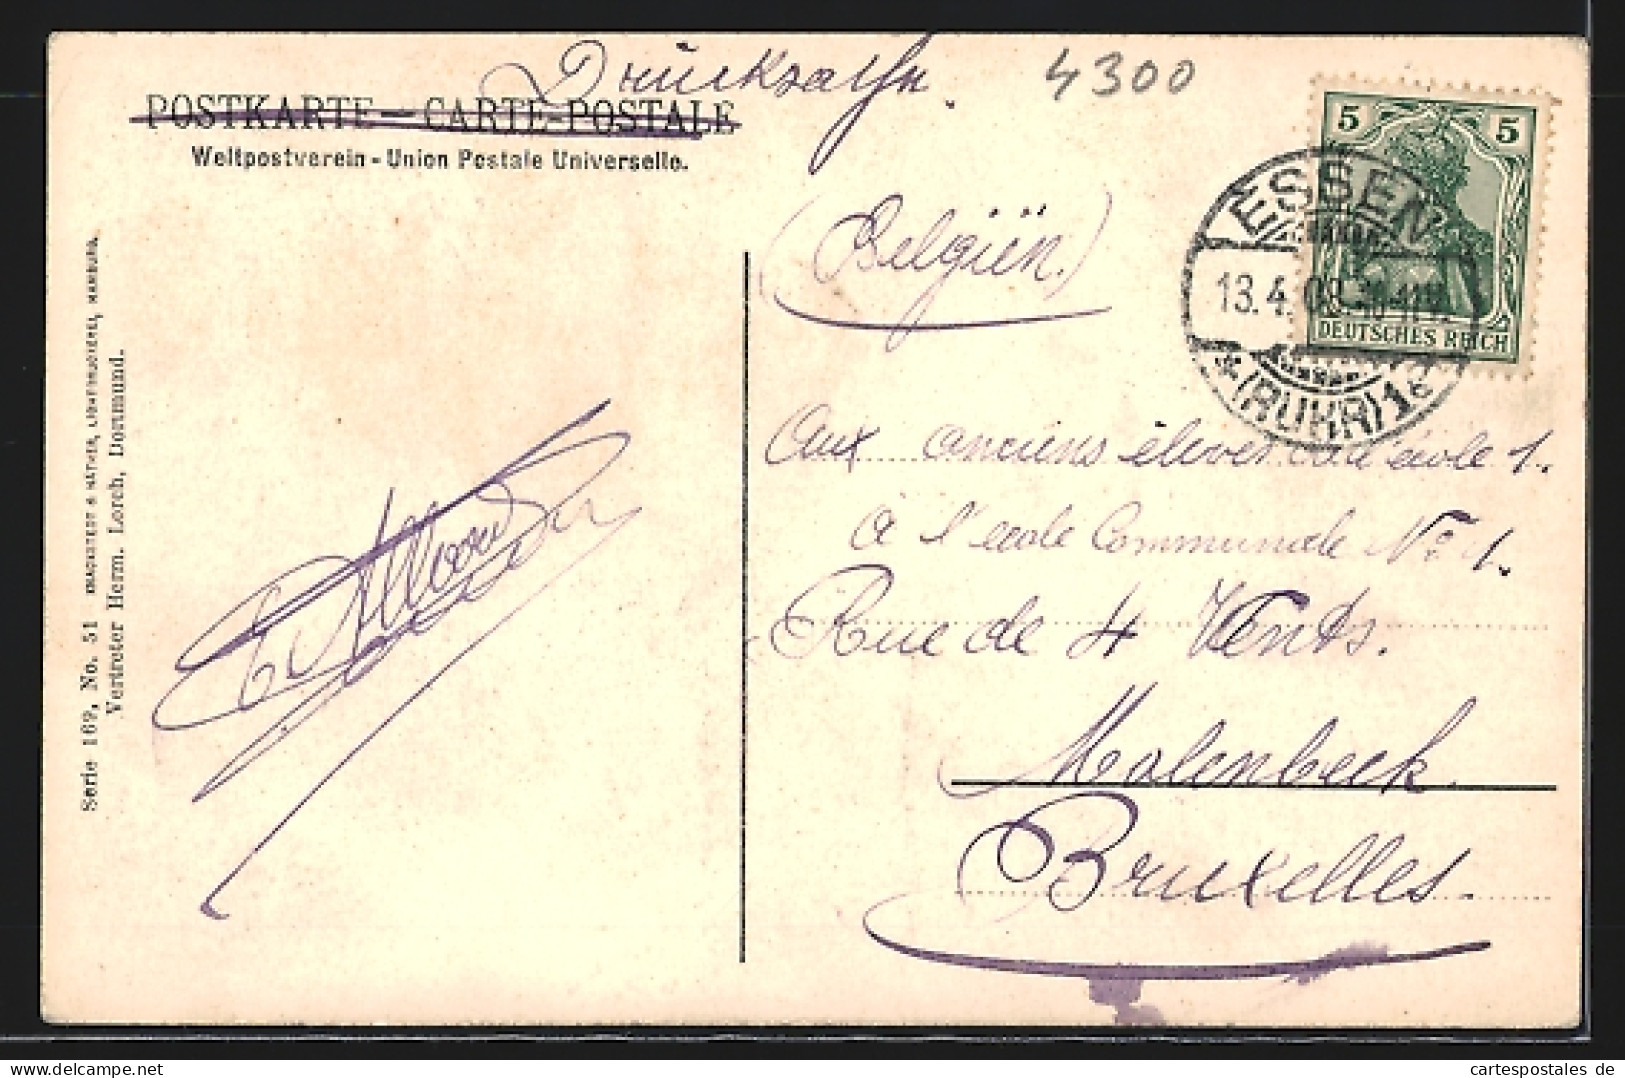 Drucksache.
4300
POSTKARTE – CARTE-POSTALE
Weltpostverein - Union Postale Universelle.
5 5
DEUTSCHES REICH
ESSEN
13.4.
*(RUHR)1
(Belgiën.)
Aux anciens élèves
à l'école Communale No. 1.
Rue de 4 Vents.
Molenbeek.
Bruxelles.
Serie 169, No. 51 KNACKSTEDT & NÄTHER, LICHTDRUCKEREI, HAMBURG.
Vertreter Herm. Lorch, Dortmund.
cartespostales de